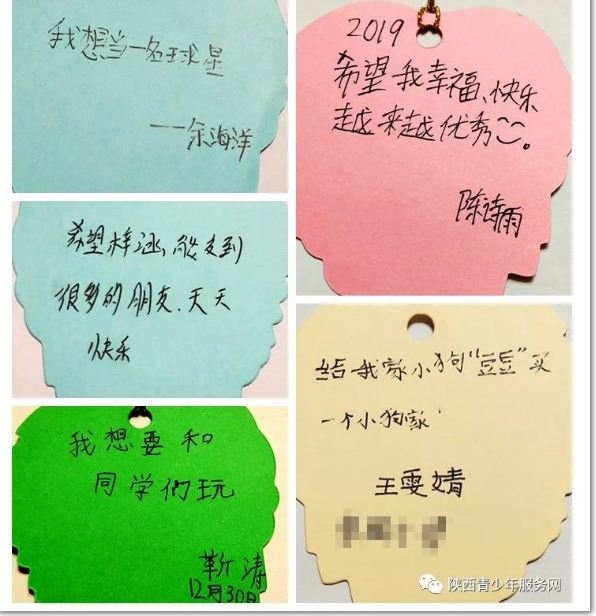 我想当一名球星
——余海洋
希望梓涵,能交到
很多的朋友、天天
快乐
我想要和
同学们玩
靳涛
12月30日
2019
希望我幸福、快乐
越来越优秀。
陈诗雨
给我家小狗“豆豆”买
一个小狗窝
王雯婧
陕西青少年服务网